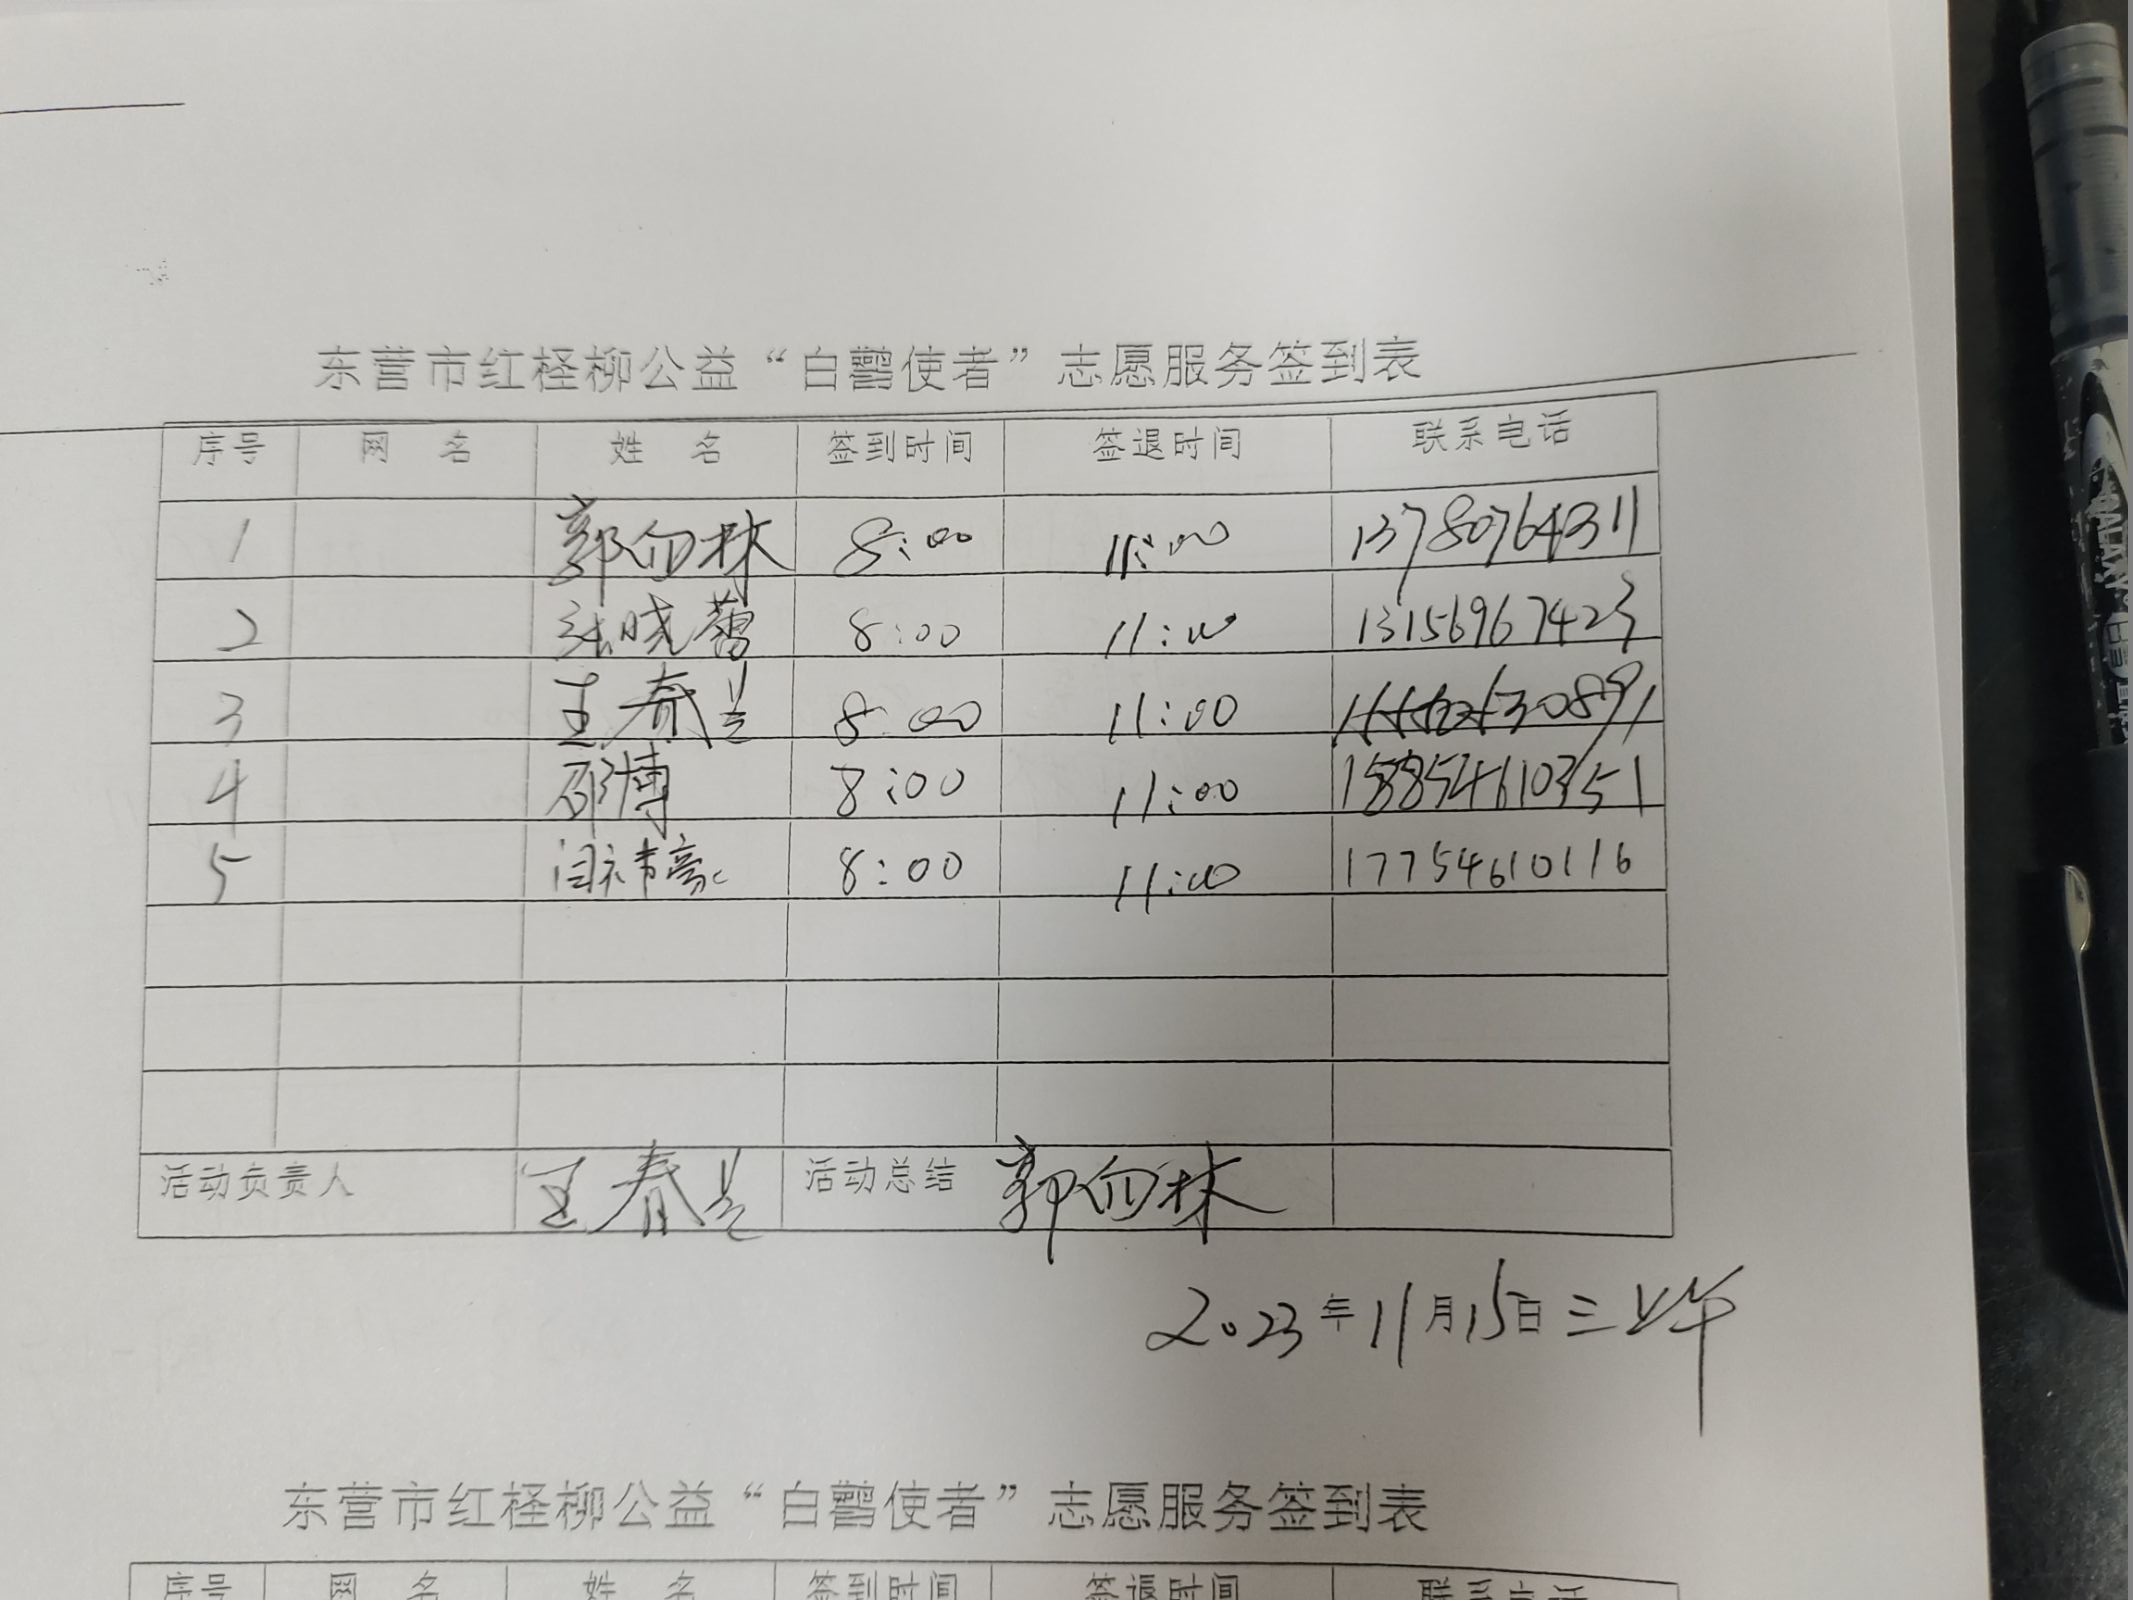 东营市红柽柳公益“白鹳使者”志愿服务签到表
序号 网 名 姓 名 签到时间 签退时间 联系电话
1 郭向林 8:00 11:00 13780764311
2 张晓蕾 8:00 11:00 13156967423
3 王春兰 8:00 11:00
4 邵博 8:00 11:00
5 8:00 11:00 17754610116
活动负责人 王春兰 活动总结 郭向林
2023年11月15日三上午
东营市红柽柳公益“白鹳使者”志愿服务签到表
序号 网 名 姓 名 签到时间 签退时间 联系电话